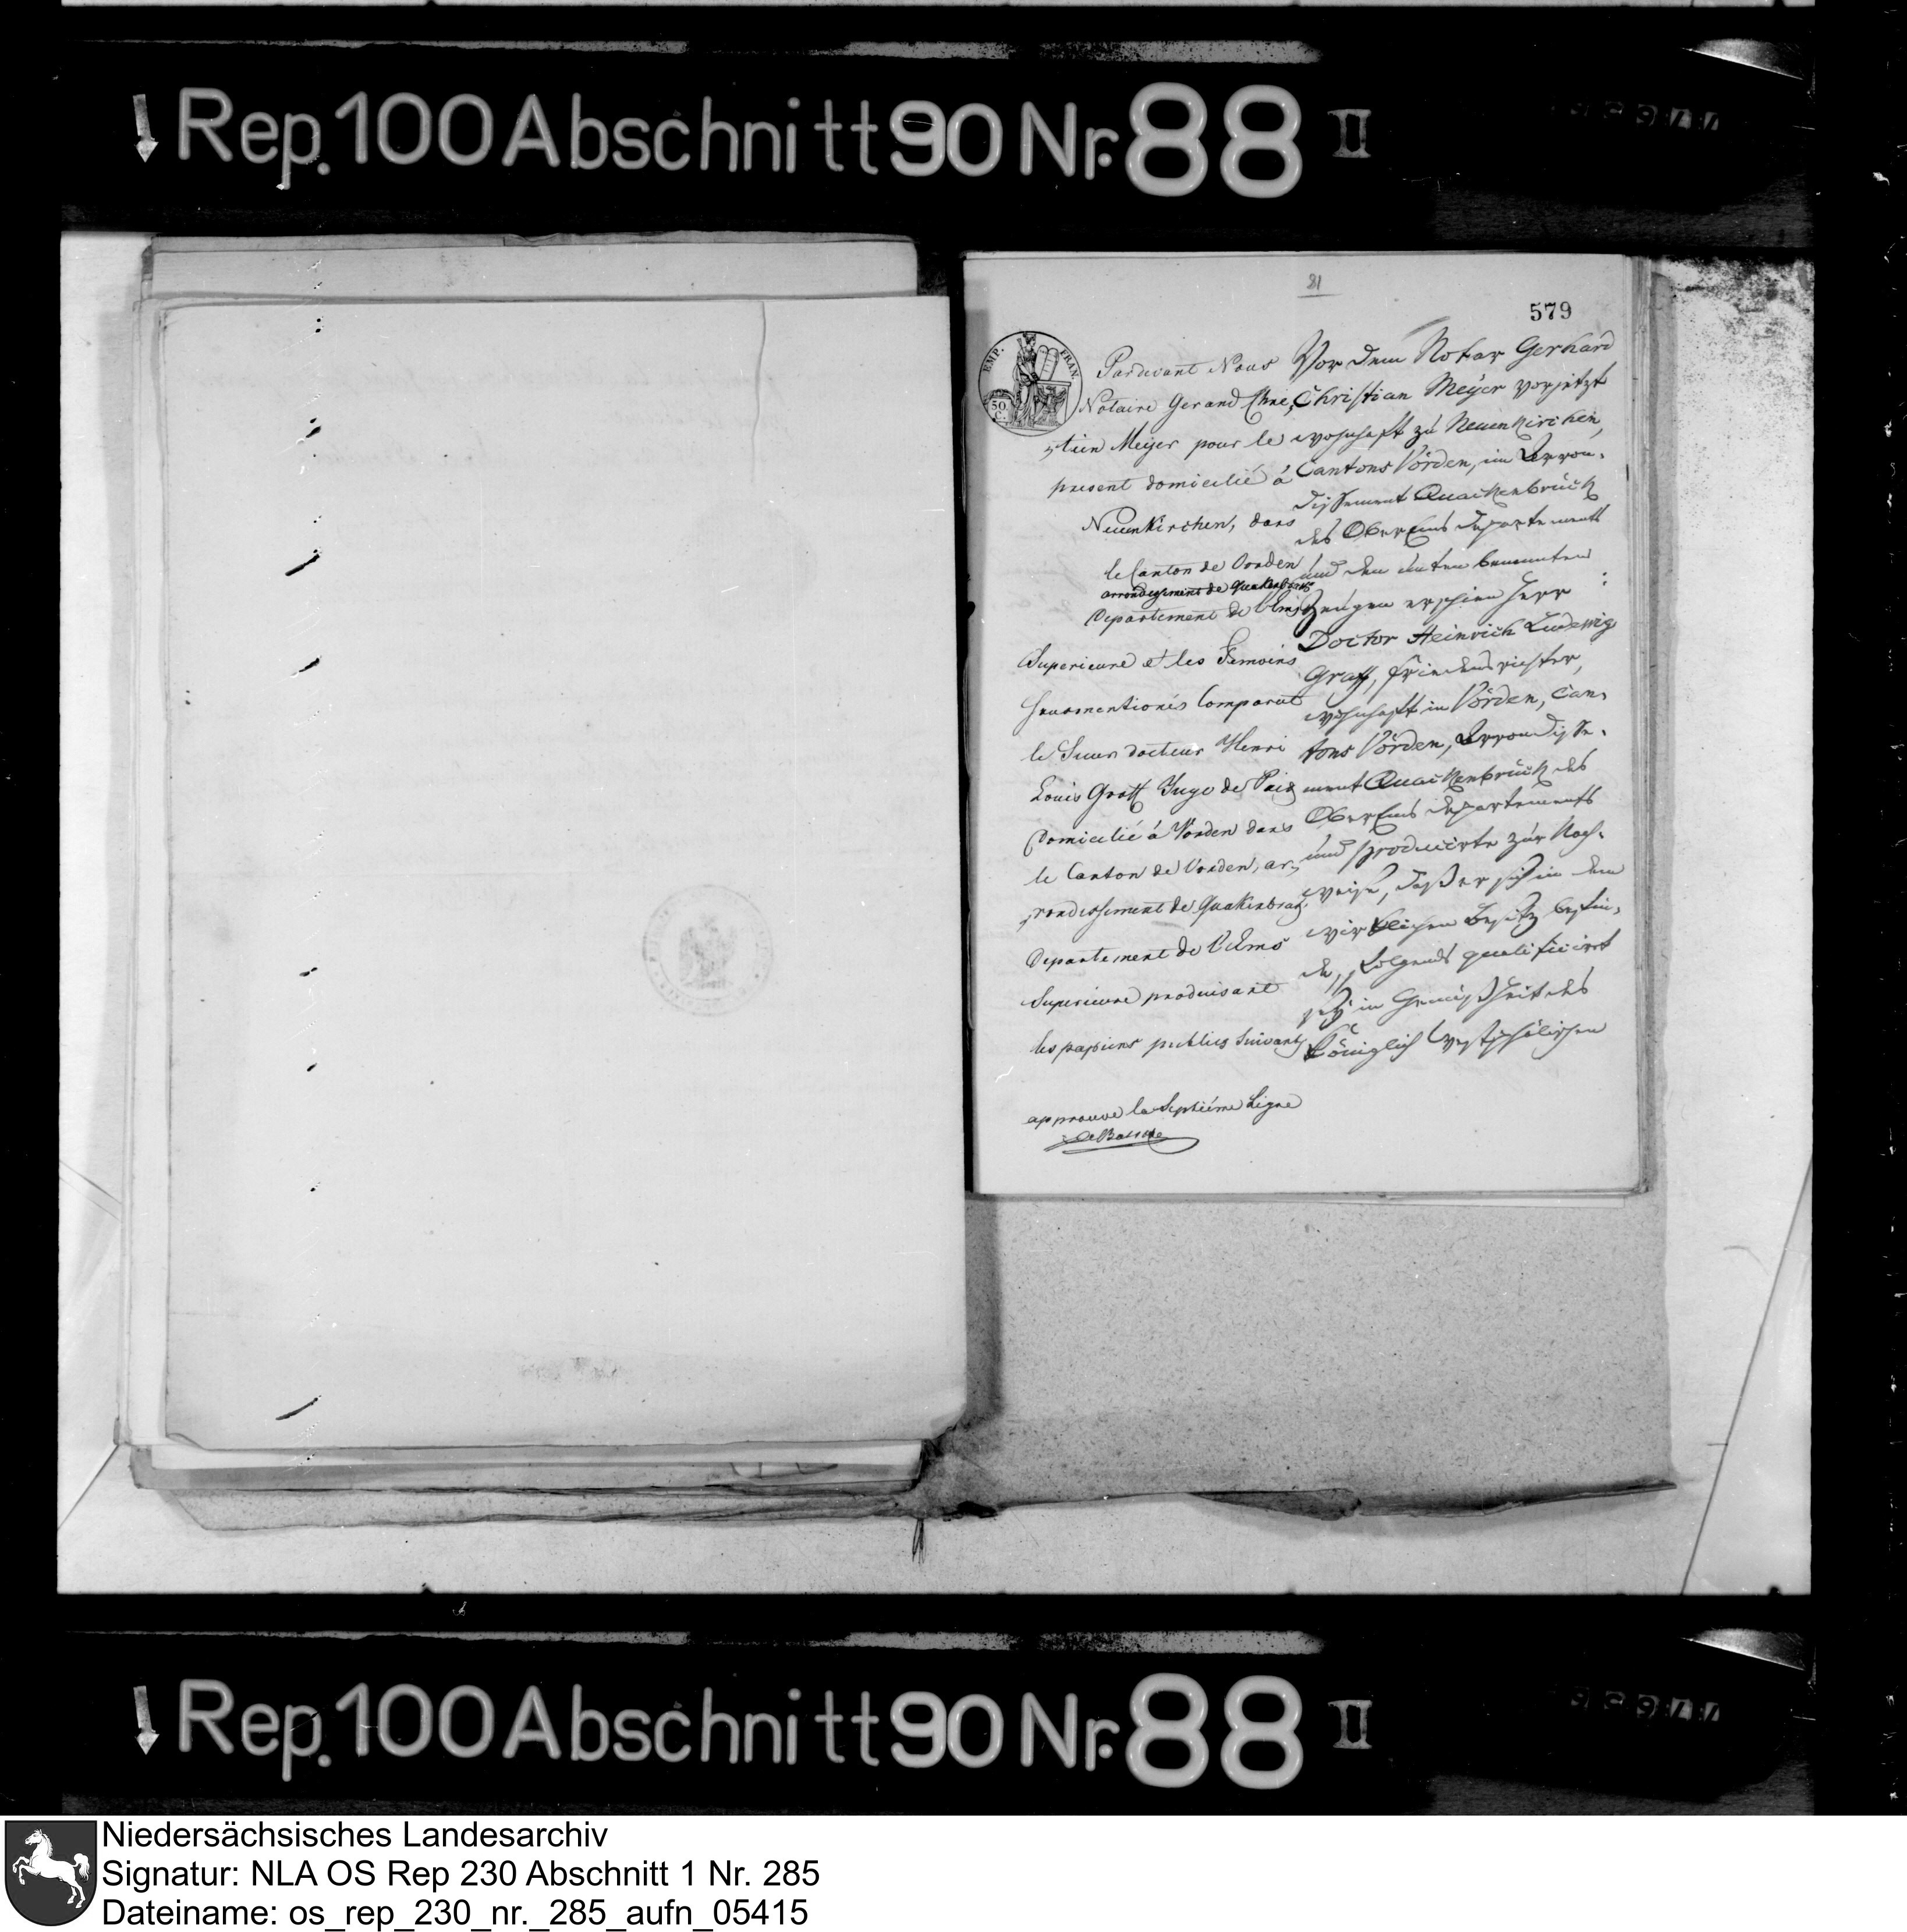 Rep. 100 Abschnitt 90 Nr. 88 II
81
579
EMP. FRAN.
50 C.
Pardevant Nous
Notaire Gerard Chrie,
stien Meyer pour le
present domicilié à
Neuenkirchen, dans
le Canton de Vorden
arrondissement de Quakenbrug
Departement de l'Ems
Superieure et les Temoins
susmentionés Comparut
le Sieur docteur Henri
Louis Graff Juge de Paix
Domicilié à Vorden dans
le Canton de Vorden, ar,
rondissement de Quakenbrug
Departement de l'Ems
Superieure produisant
les papiers publics suivants
approuve la Septiéme Ligne
Vor dem Notar Gerhard
Christian Meyer vorjetzt
wohnhaft zu Neuenkirchen,
Cantons Vörden, im Arron-
dissement Quackenbrück
des OberEms Departements
und den unten benannten
Zeugen erschien Herr
Doctor Heinrich Ludewig
Graff, Friedensrichter,
wohnhaft in Vörden, Can-
tons Vörden, Arrondisse-
ment Quackenbrück des
OberEms Departements
und producirte zur Nach-
weise, daß er sich in dem
wirklichen Besitz befin-
de, folgends qualificirt
sey in Gemäßheit des
Königlich Westphälischen
Rep. 100 Abschnitt 90 Nr. 88 II
Niedersächsisches Landesarchiv
Signatur: NLA OS Rep 230 Abschnitt 1 Nr. 285
Dateiname: os_rep_230_nr._285_aufn_05415